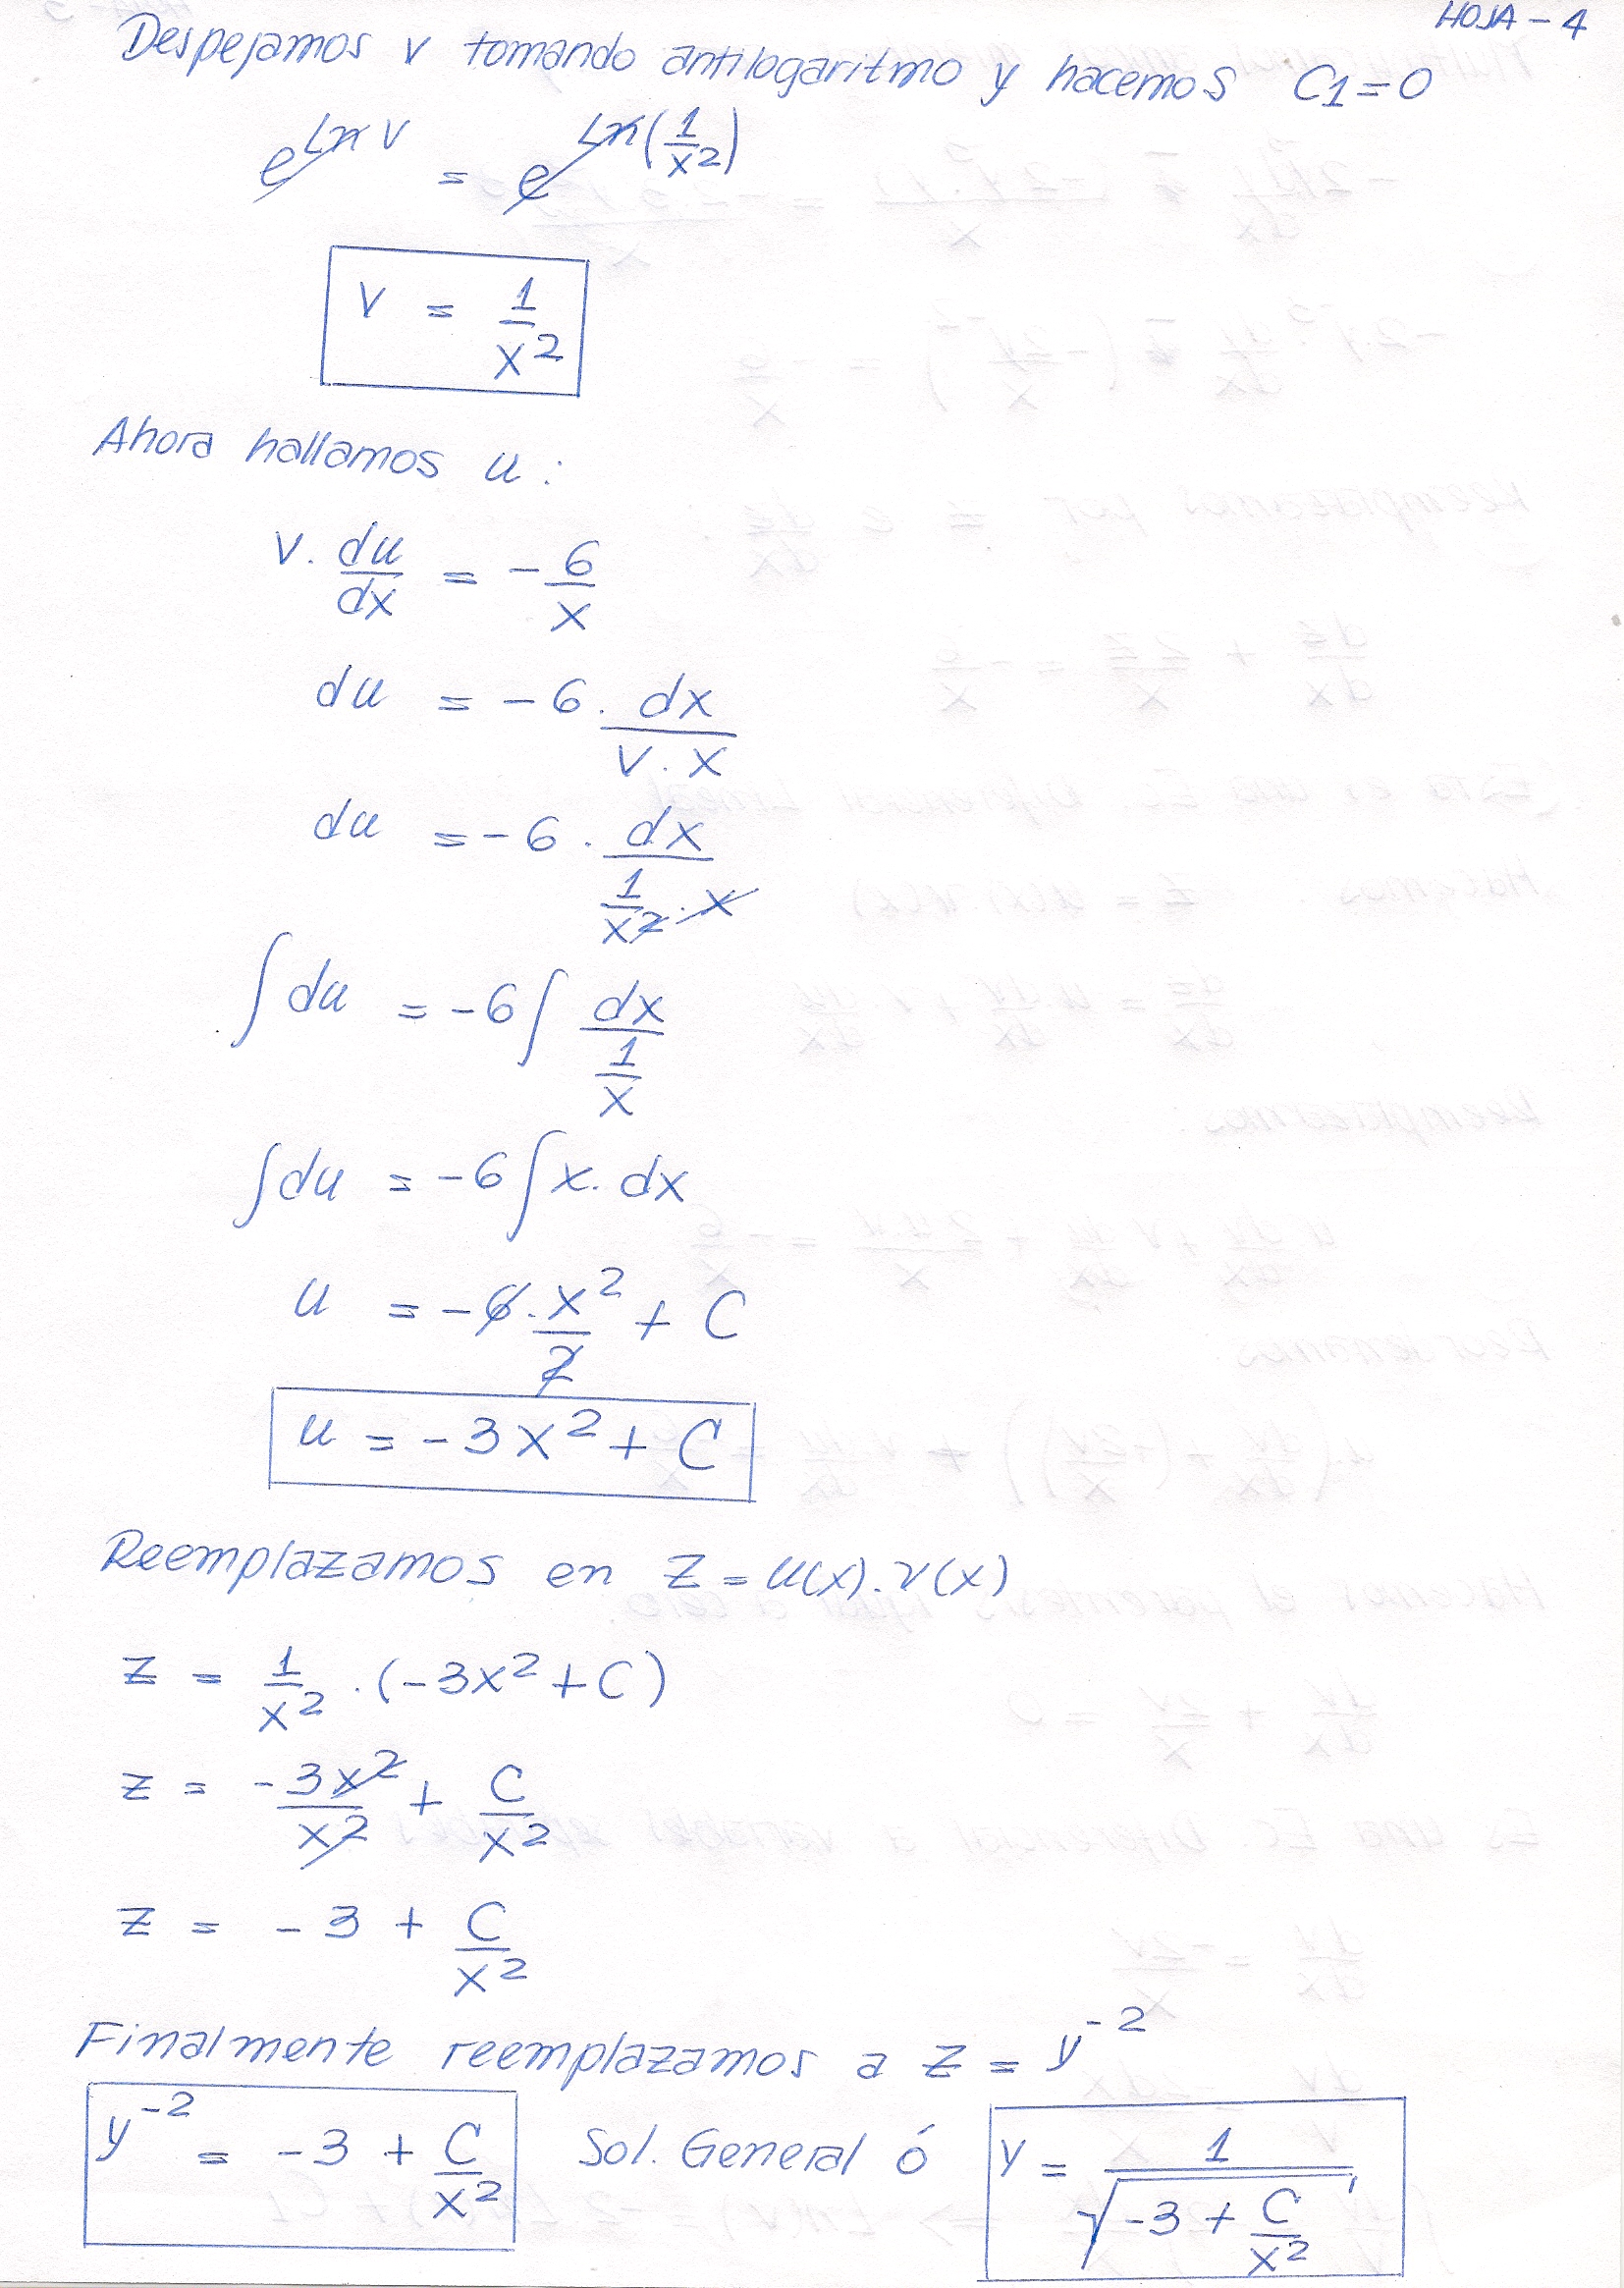 HOJA - 4
Despejamos v tomando antilogaritmo y hacemos C1=0
e^(Ln v) = e^(Ln(1/x²))
v = 1/x²
Ahora hallamos u:
v. du/dx = - 6/x
du = -6. dx/(v.x)
du = -6. dx/(1/x² . x)
∫du = -6∫ dx/(1/x)
∫du = -6∫x.dx
u = -6. x²/2 + C
u = -3x² + C
Reemplazamos en z = u(x).v(x)
z = 1/x² . (-3x² + C)
z = -3x²/x² + C/x²
z = -3 + C/x²
Finalmente reemplazamos a z = y⁻²
y⁻² = -3 + C/x² Sol. General ó y = 1/√(-3 + C/x²)